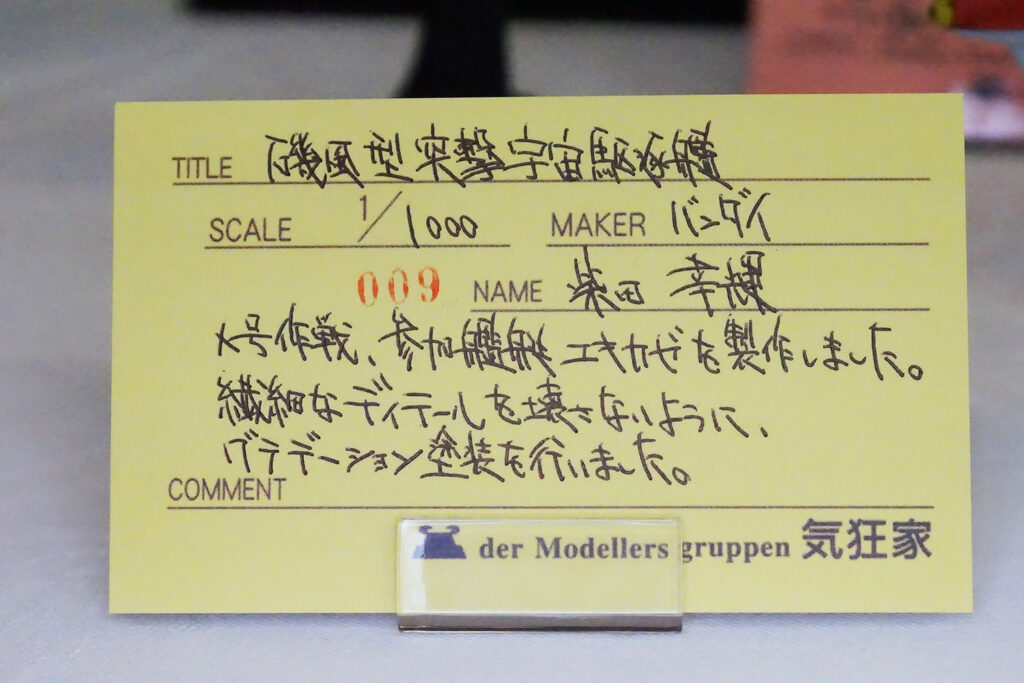 TITLE 磯風型突撃宇宙駆逐艦
SCALE 1/1000 MAKER バンダイ
009 NAME 柴田 幸輝
メ号作戦、参加艦艇ユキカゼを製作しました。
繊細なディテールを壊さないように、
グラデーション塗装を行いました。
COMMENT
der Modellers gruppen 気狂家